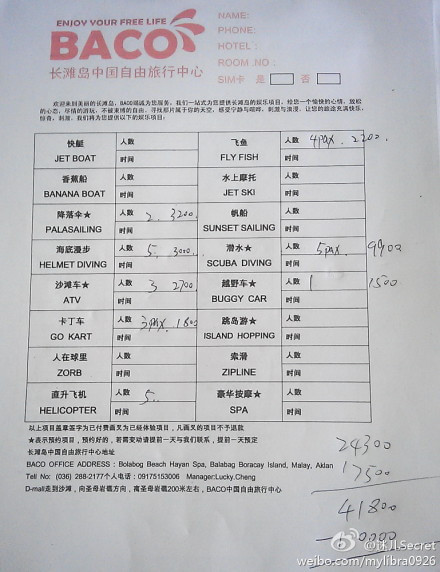 ENJOY YOUR FREE LIFE
BACO
长滩岛中国自由旅行中心
NAME:
PHONE:
HOTEL:
ROOM NO:
SIM卡 是 否
欢迎来到美丽的长滩岛，BACO竭诚为您服务，我们一站式为您提供长滩岛的娱乐项目，给您一个愉快的心情，放松
的心态，尽情的游玩，不被束缚的自由，寻找那片属于你的天空，感受宁静与喧哗，刺激与浪漫，让您的旅途充满快乐，
惊奇，刺激。我们将为您提供以下的娱乐项目：
快艇 人数 飞鱼 人数 4pax. 2200.
JET BOAT 时间 FLY FISH 时间
香蕉船 人数 水上摩托 人数
BANANA BOAT 时间 JET SKI 时间
降落伞★ 人数 2. 3200. 帆船 人数
PALASAILING 时间 SUNSET SAILING 时间
海底漫步 人数 5. 3000. 潜水★ 人数 5pax. 9900
HELMET DIVING 时间 SCUBA DIVING 时间
沙滩车★ 人数 3 2700. 越野车★ 人数 1 1500
ATV 时间 BUGGY CAR 时间
卡丁车 人数 3pax. 1800 跳岛游★ 人数
GO KART 时间 ISLAND HOPPING 时间
人在球里 人数 索滑 人数
ZORB 时间 ZIPLINE 时间
直升飞机 人数 5.. 豪华按摩★ 人数
HELICOPTER 时间 SPA 时间
以上项目盖章签字为已付费画叉为已经体验项目，凡画叉的项目不予退款
★表示预约项目，预约好的，若需变动请提前一天与我们联系，提前一天预定
长滩岛中国自由旅行中心地址
BACO OFFICE ADDRESS : Bolabog Beach Hayan Spa, Balabag Boracay Island, Malay, Aklan
Tell No: (036) 288-2177个人电话：09175153006 Manager:Lucky.Cheng
D-mall走到沙滩，向圣母岩礁方向，离圣母岩礁200米左右，BACO中国自由旅行中心
24300
17500
41800
weibo.com/mylibra0926